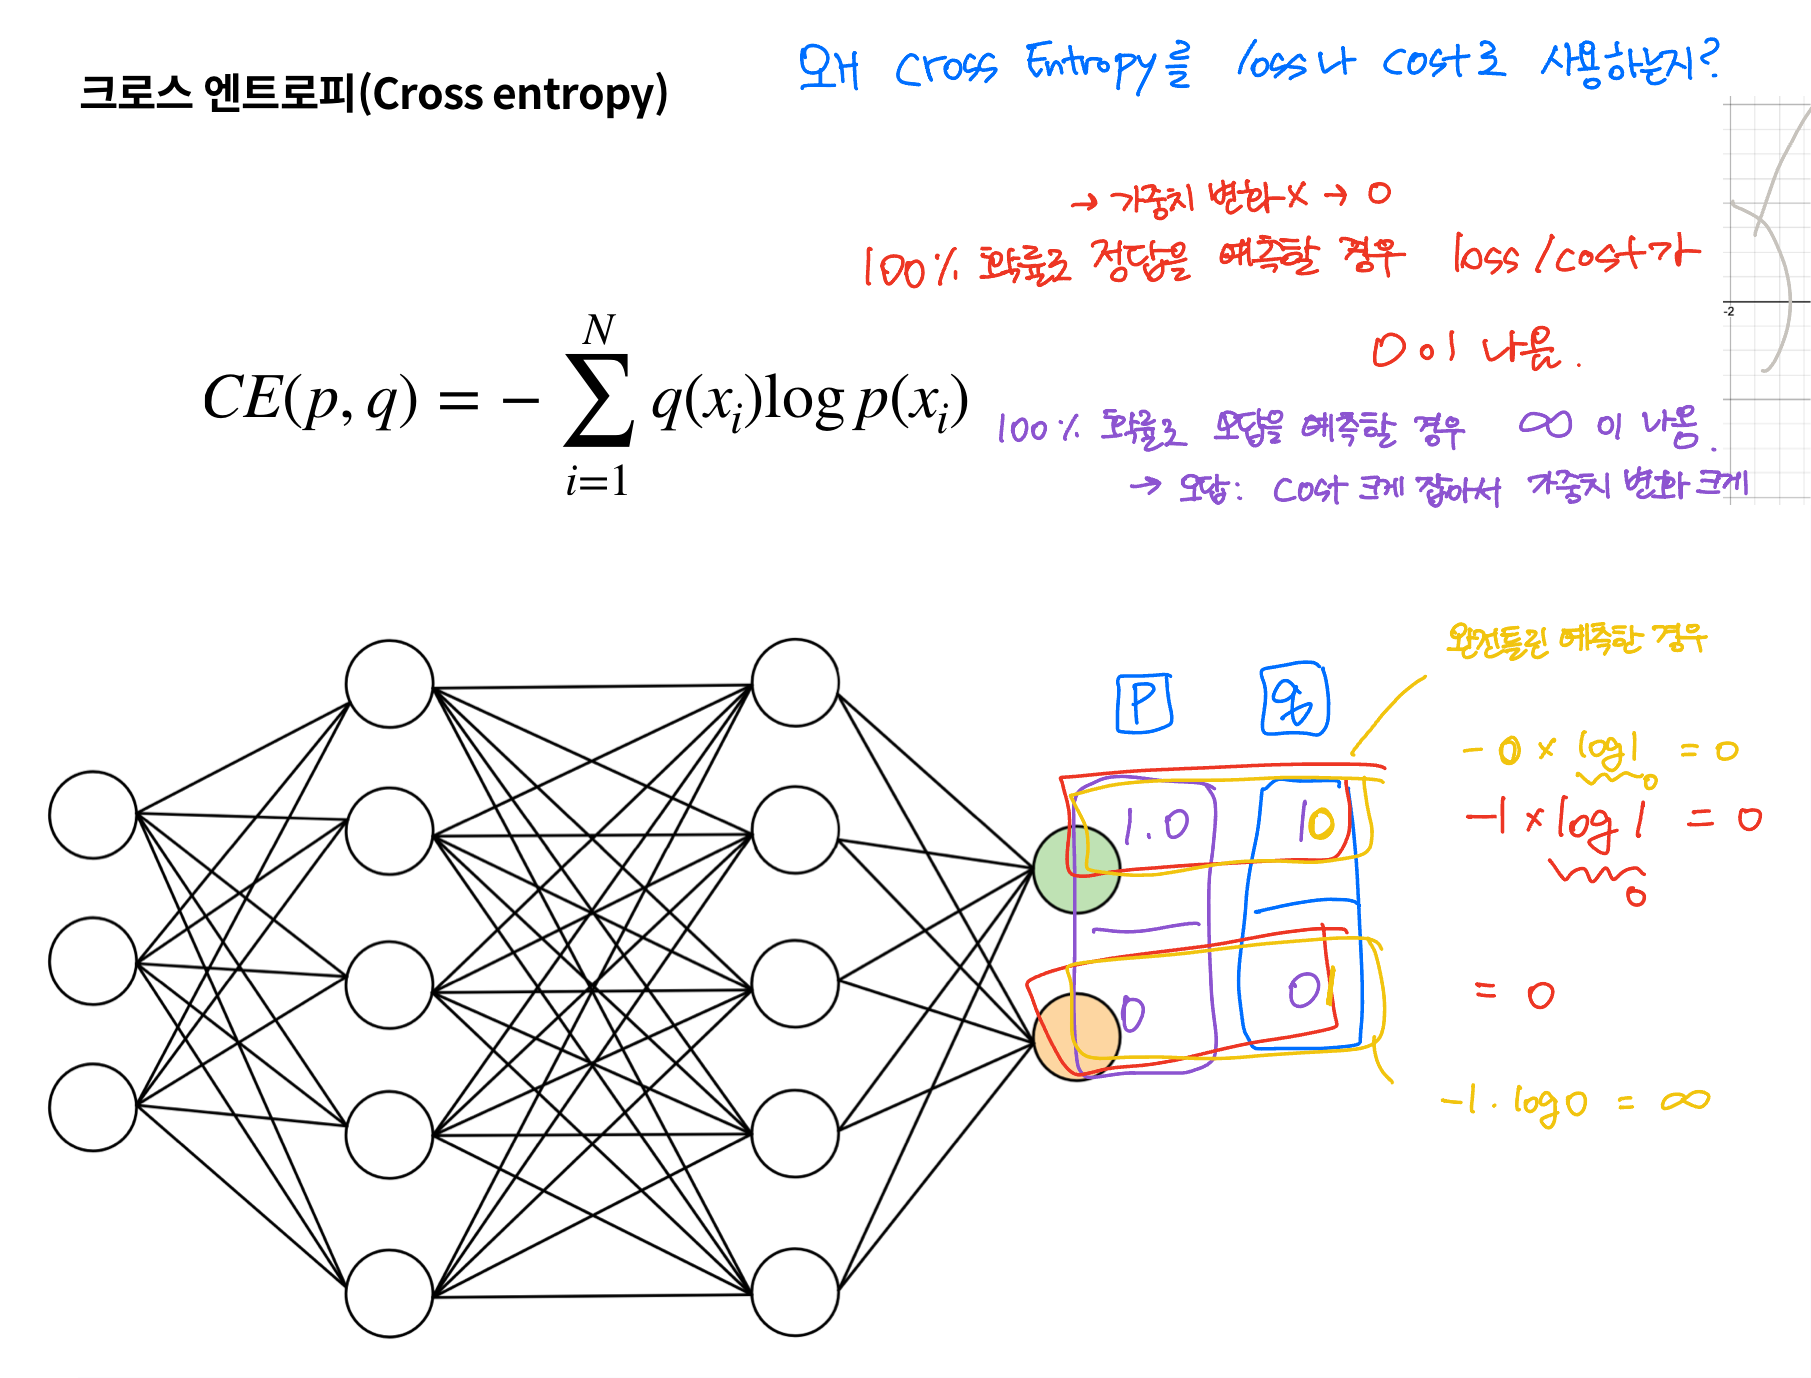 왜 Cross Entropy를 loss나 cost로 사용하는지?
크로스 엔트로피(Cross entropy)
→ 가중치 변화 X → 0
100% 확률로 정답을 예측할 경우 loss/cost가
0이 나옴.
CE(p, q) = − ∑_{i=1}^{N} q(x_i)log p(x_i)
100% 확률로 오답을 예측할 경우 ∞이 나옴.
→ 오답: cost 크게 잡아서 가중치 변화 크게
-2
완전 틀린 예측한 경우
P q
-0 × log1 = 0
0
1.0 1 0
-1 × log 1 = 0
0
0 0 1
= 0
-1 · log0 = ∞